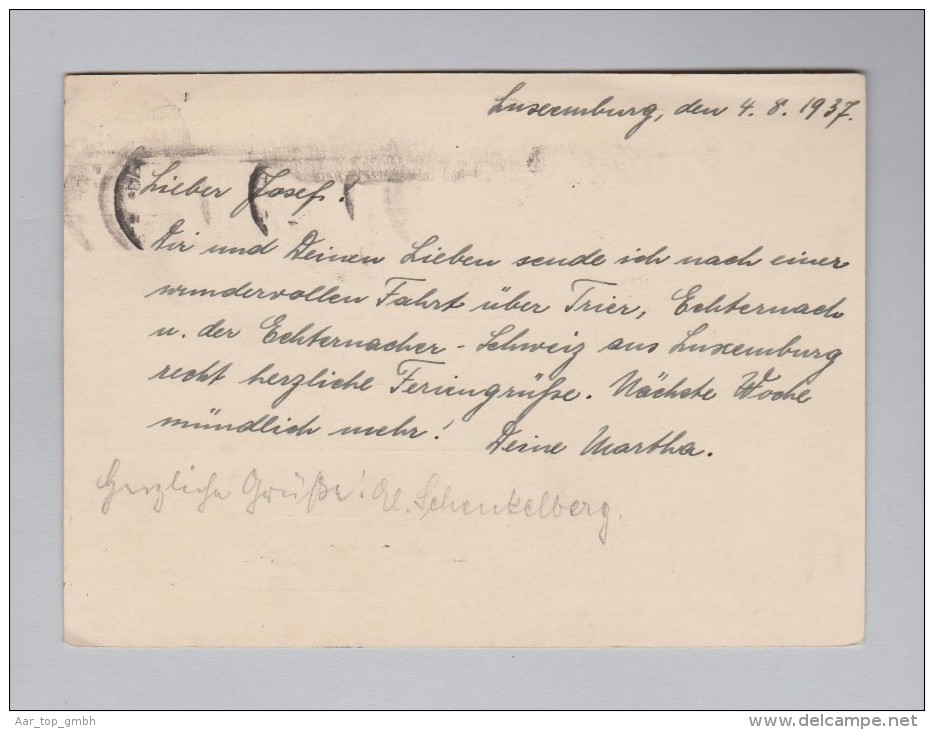 Luxemburg, den 4. 8. 1937.
Lieber Josef!
Dir und Deinen Lieben sende ich nach einer
wundervollen Fahrt über Trier, Echternach
u. der Echternacher-Schweiz aus Luxemburg
recht herzliche Feriengrüße. Nächste Woche
mündlich mehr! Deine Martha.
Herzliche Grüße! El. Schenkelberg.
Aar_top_gmbh
www.delcampe.net